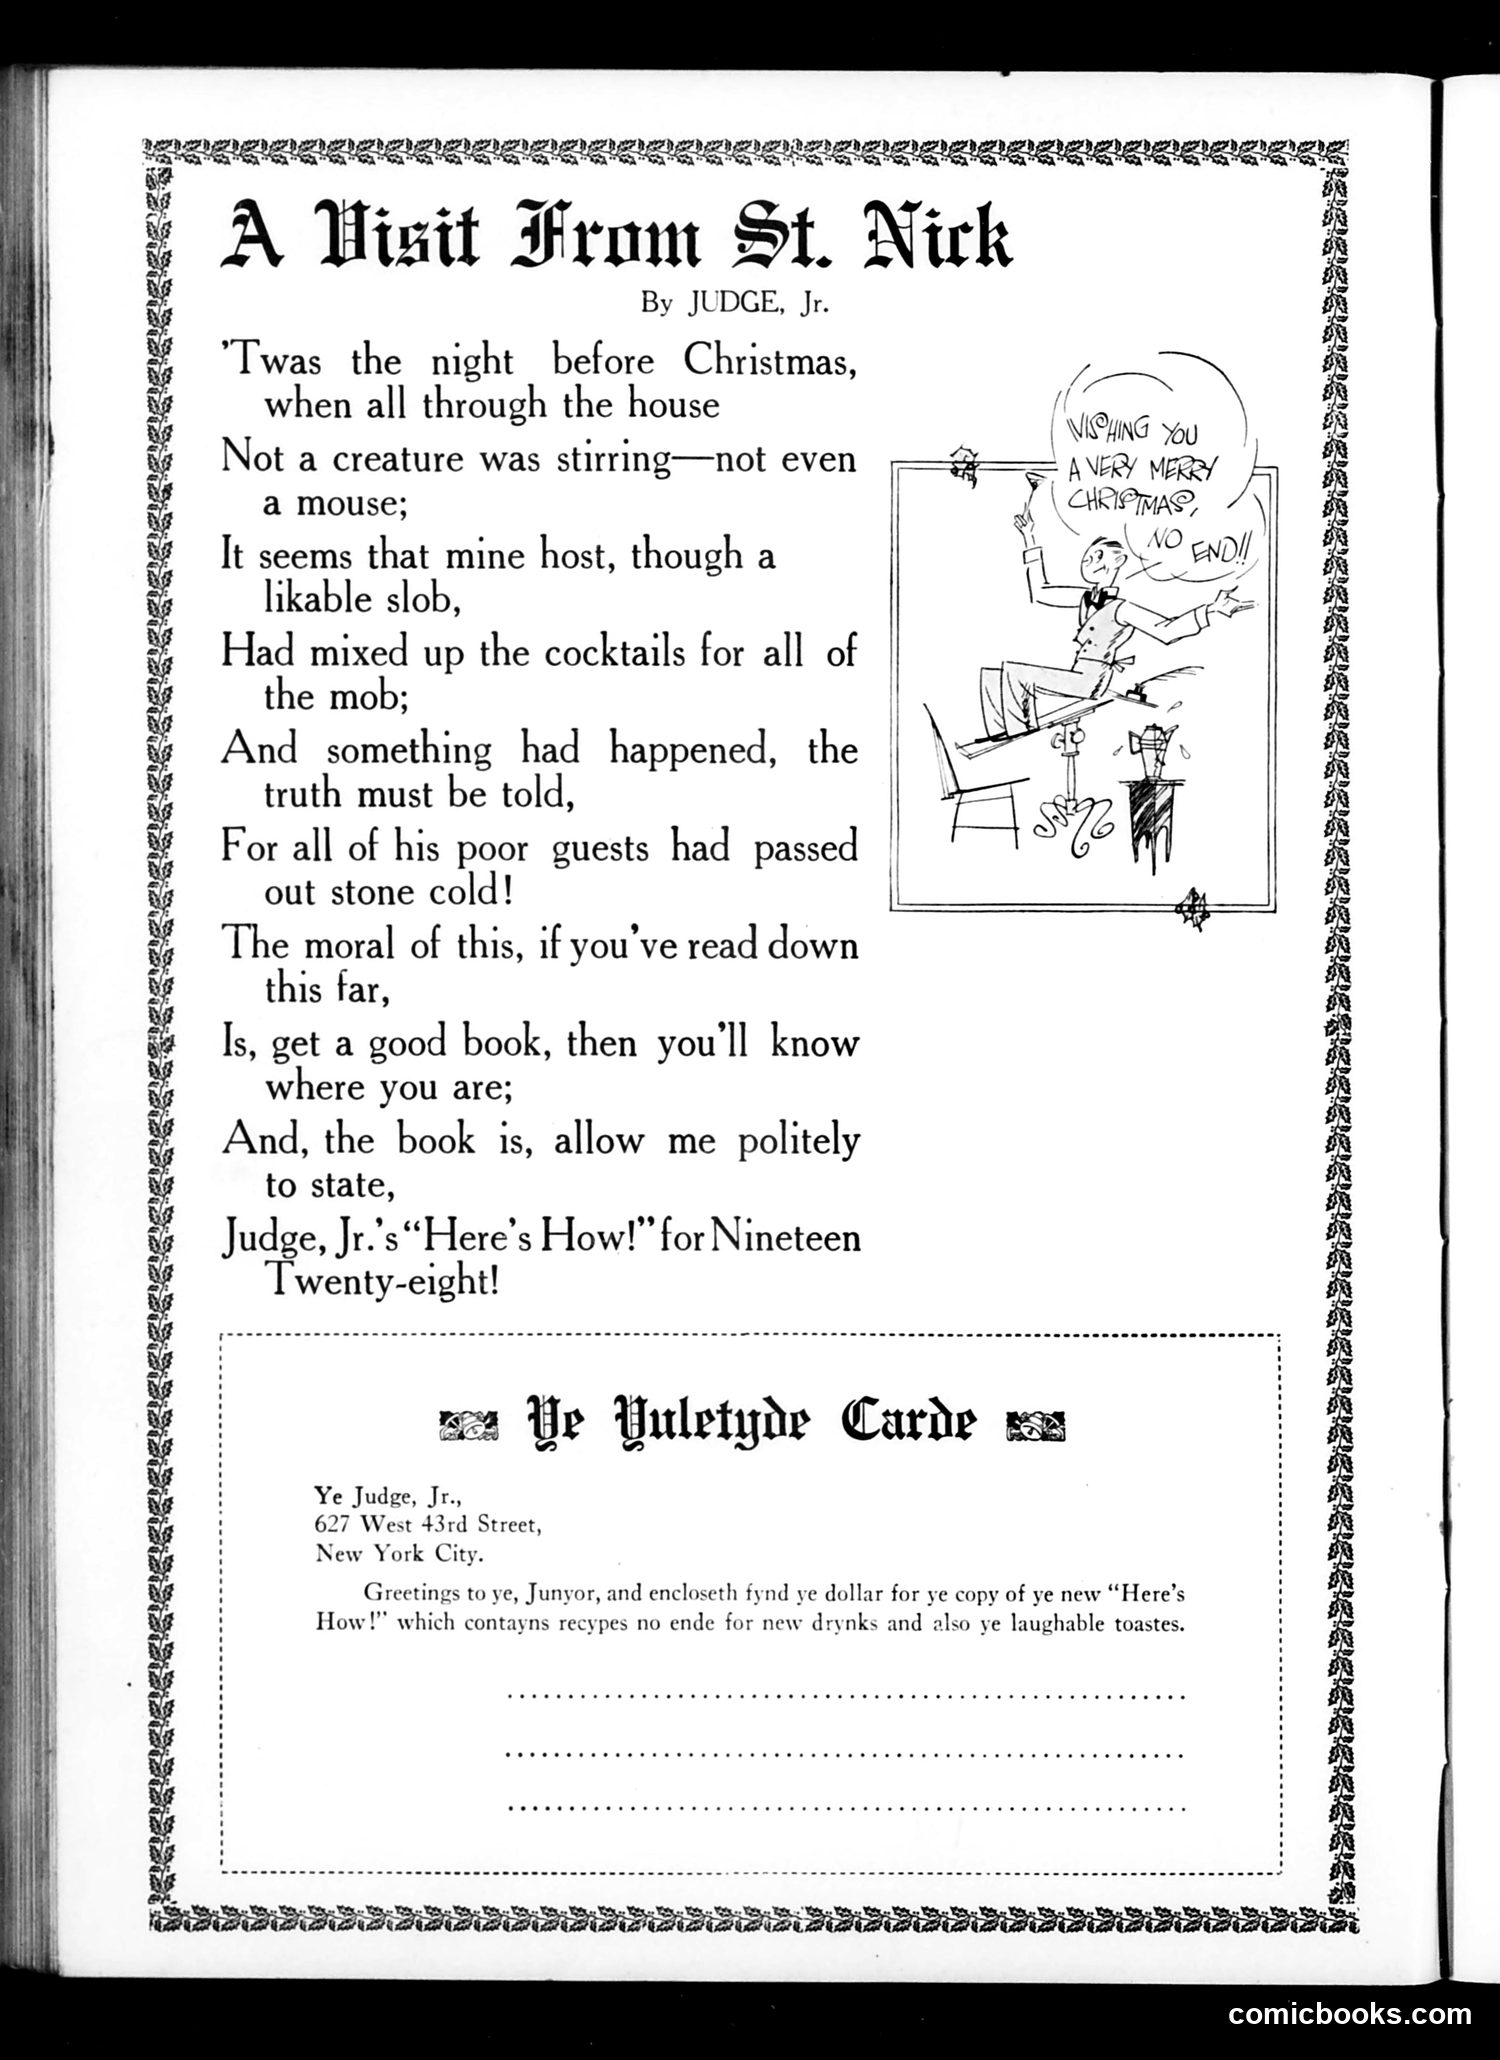 A Visit From St. Nick
By JUDGE, Jr.
'Twas the night before Christmas,
when all through the house
Not a creature was stirring—not even
a mouse;
It seems that mine host, though a
likable slob,
Had mixed up the cocktails for all of
the mob;
And something had happened, the
truth must be told,
For all of his poor guests had passed
out stone cold!
The moral of this, if you've read down
this far,
Is, get a good book, then you'll know
where you are;
And, the book is, allow me politely
to state,
Judge, Jr.'s "Here's How!" for Nineteen
Twenty-eight!
WISHING YOU
A VERY MERRY
CHRISTMAS,
NO END!!
Ye Yuletyde Carde
Ye Judge, Jr.,
627 West 43rd Street,
New York City.
Greetings to ye, Junyor, and encloseth fynd ye dollar for ye copy of ye new "Here's
How!" which contayns recypes no ende for new drynks and also ye laughable toastes.
comicbooks.com